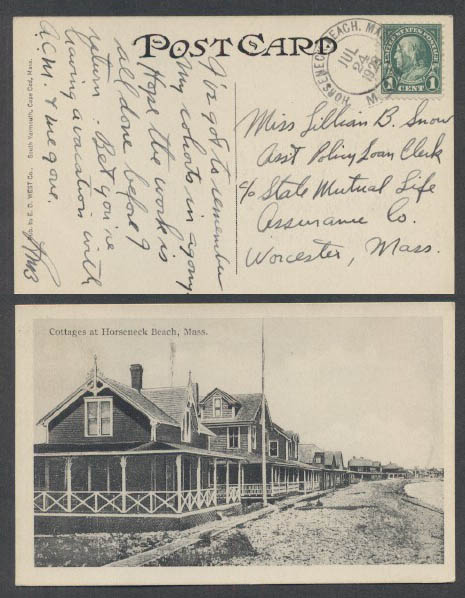 POST CARD
HORSENECK BEACH, MA
JUL
24
M
UNITED STATES POSTAGE
FRANKLIN
1 1
CENT
I've got to remember
my cohorts in agony.
Hope the work is
all done before I
return. Bet you're
having a vacation with
A.C.M. & me gone.
Pub. by E. D. WEST Co. South Yarmouth, Cape Cod, Mass.
Miss Lillian B. Snow
Ass't Policy Loan Clerk
c/o State Mutual Life
Assurance Co.
Worcester, Mass.
Cottages at Horseneck Beach, Mass.